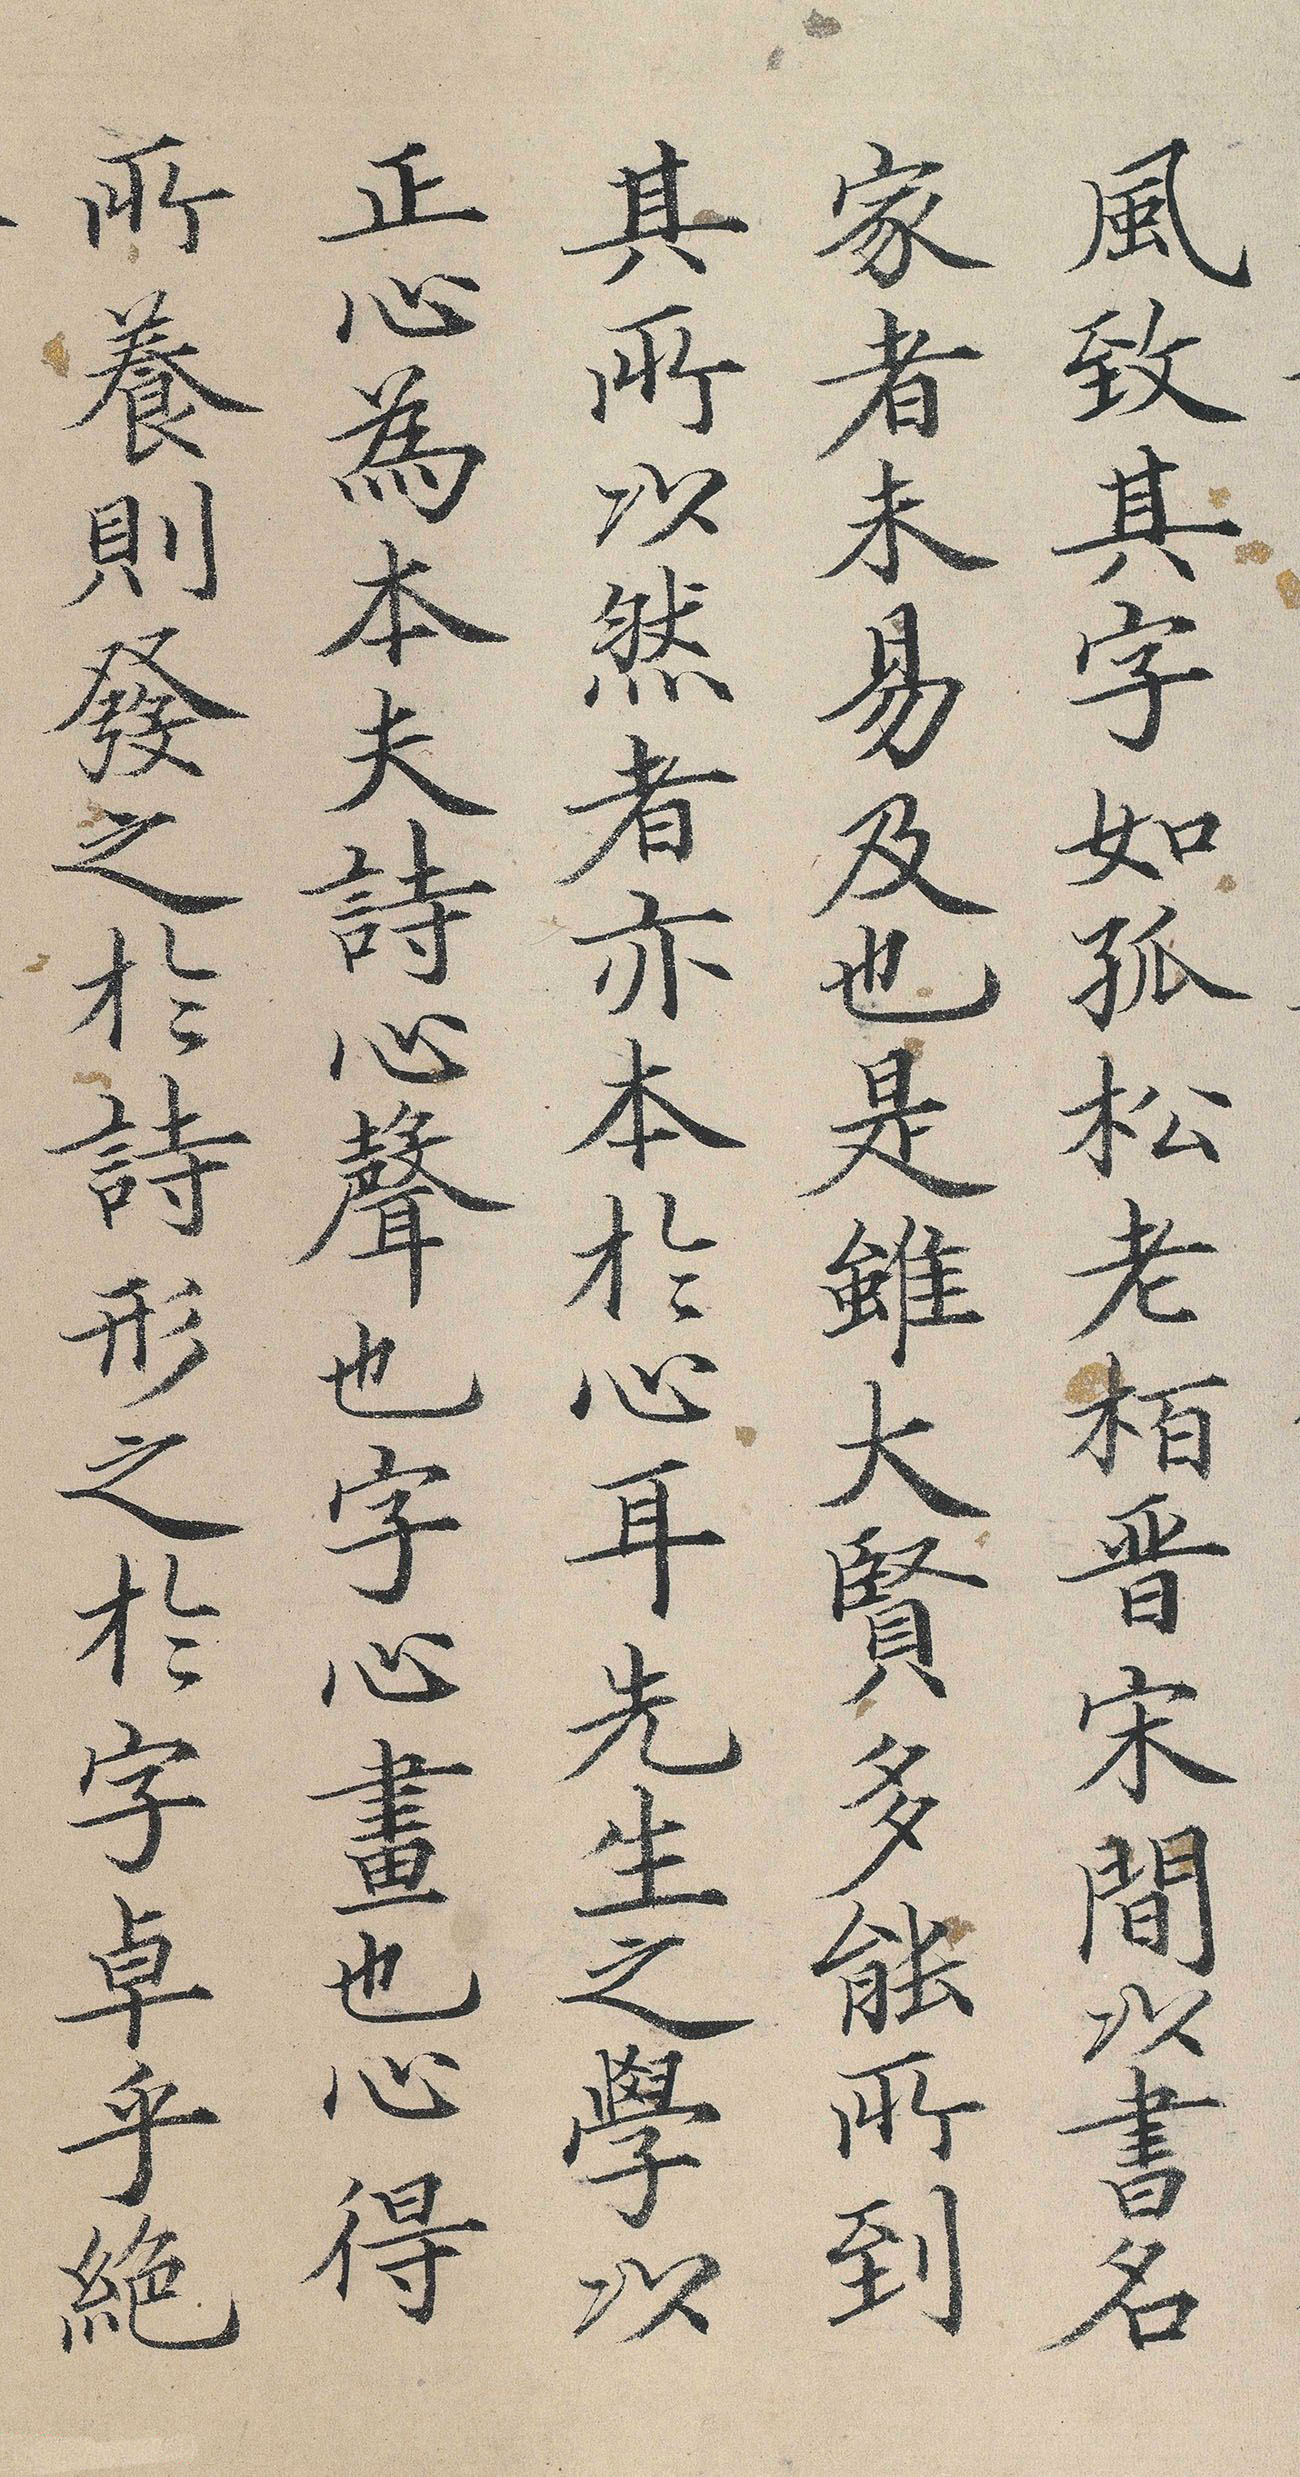 風致其字如孤松老栢晋宋間以書名
家者未易及也是雖大賢多能所到
其所以然者亦本於心耳先生之學以
正心為本夫詩心聲也字心畫也心得
所養則發之於詩形之於字卓乎絶